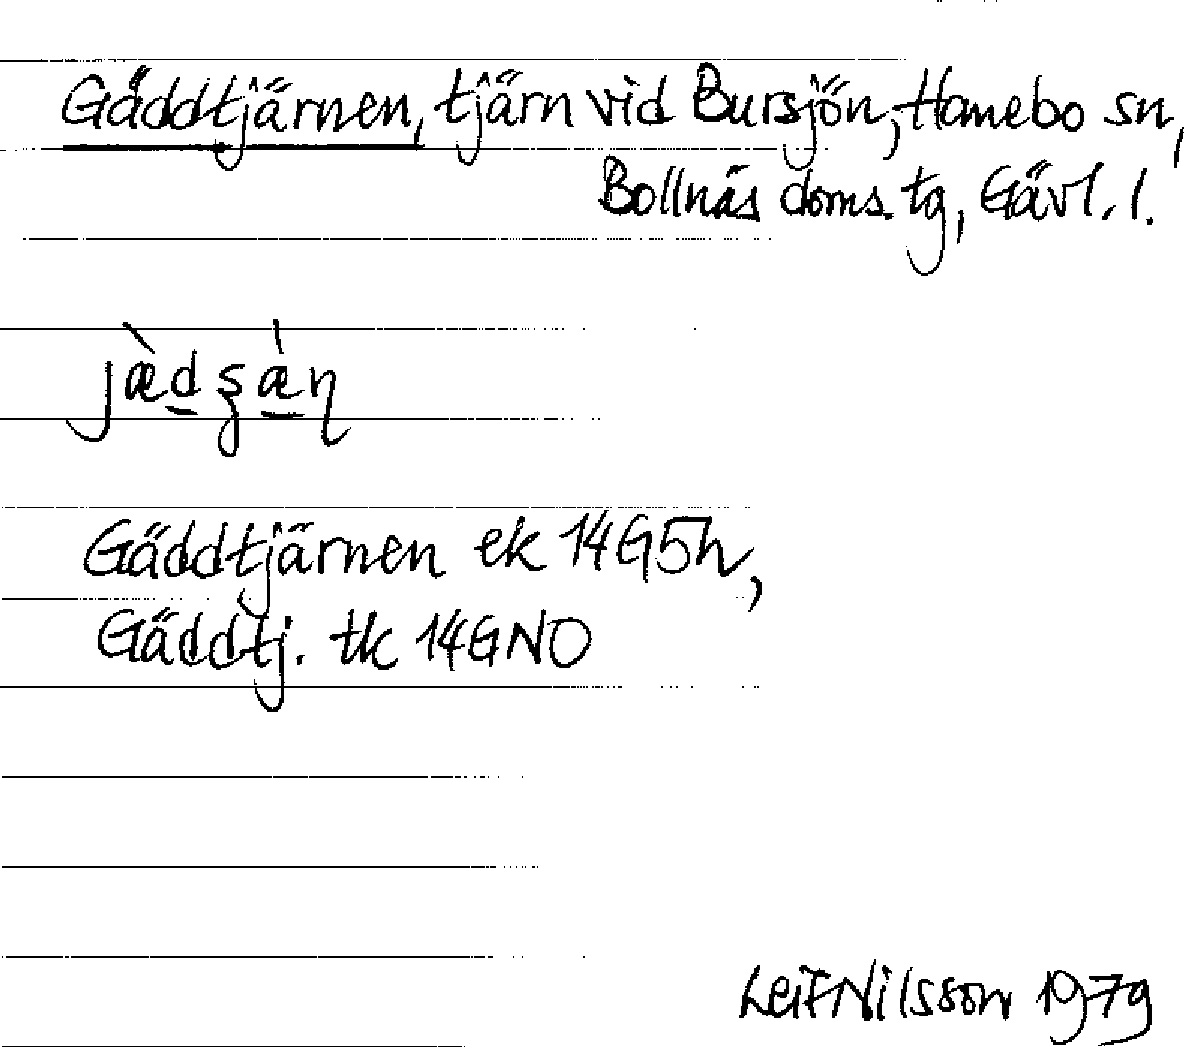 Gäddtjärnen, tjärn vid Bursjön, Hanebo sn,
Bollnäs doms. tg, Gävl. l.
Gäddtjärnen ek 14G5h,
Gäddtj. tk 14GNO
Leif Nilsson 1979